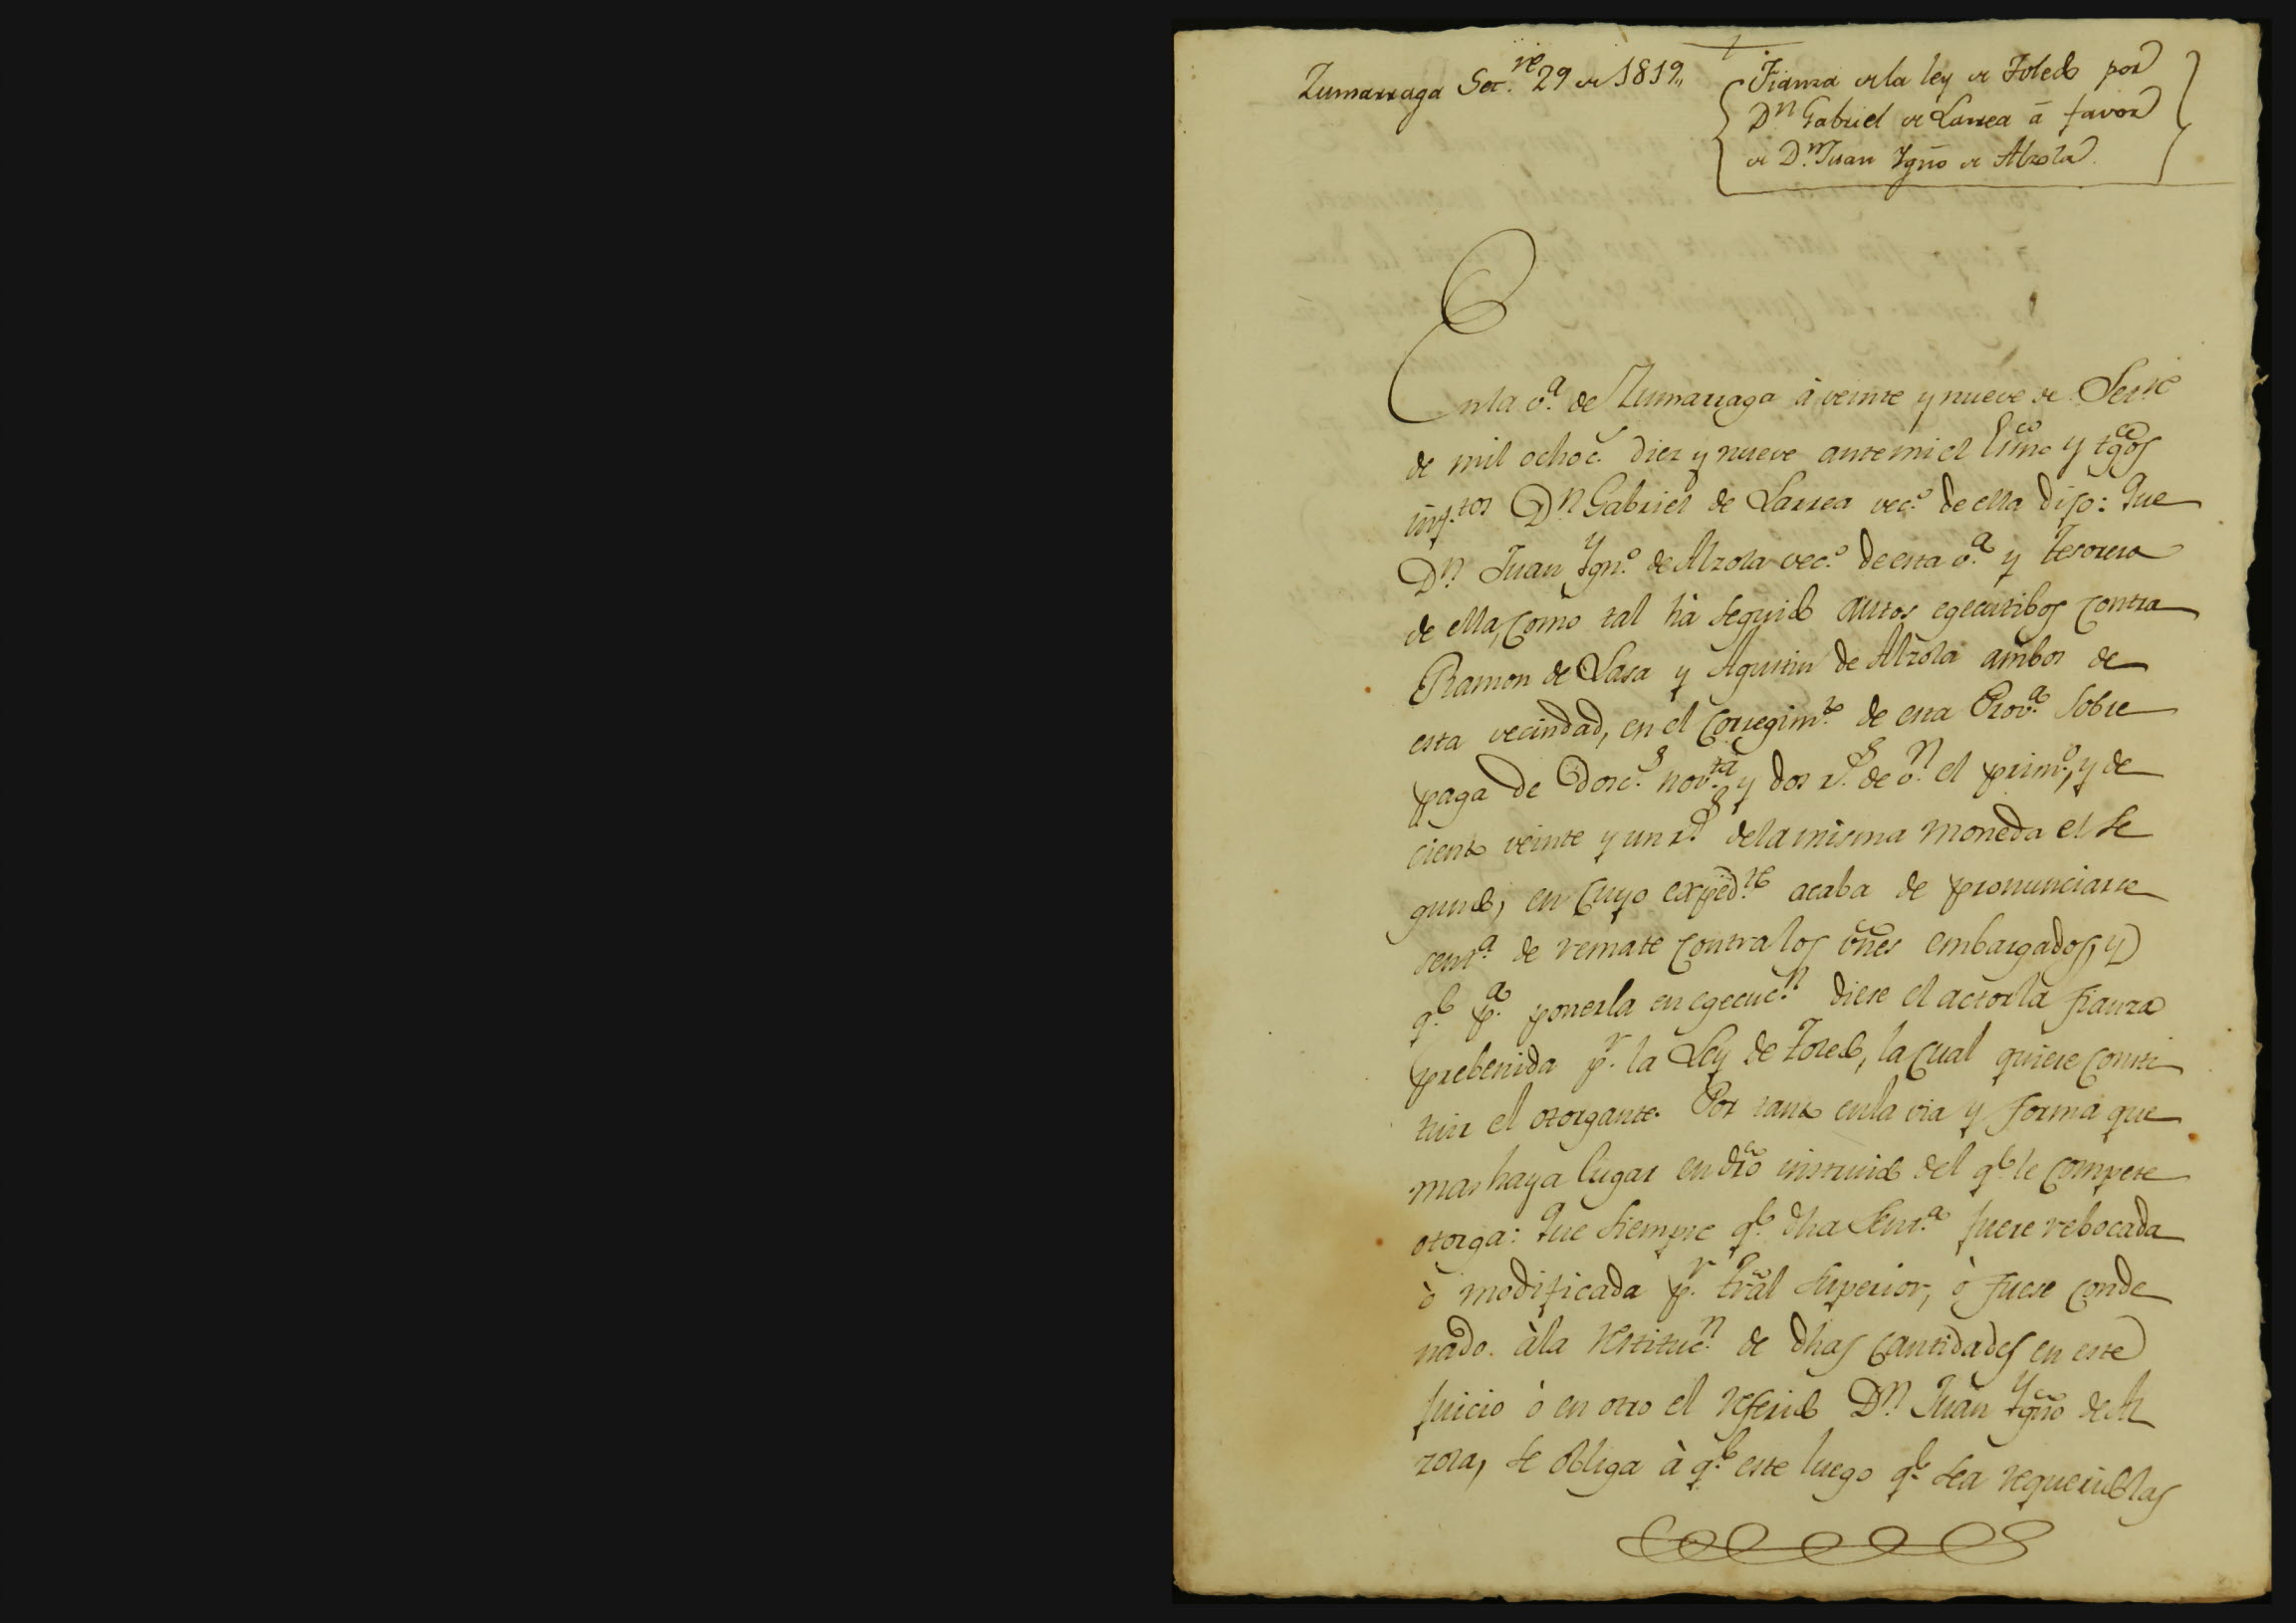 Zumarraga Set.re 29 de 1819,,
Fianza de la ley de Toledo por
Dn Gabriel de Larrea á favor
de Dn Juan Ygño de Alzola.
Enla v.a de Zumarraga à veinte y nueve de Set.re
de mil ochoc.s diez y nueve ante mi el Essno y tgos
infr.tos Dn Gabriel de Larrea vec.o de ella dijo: Que
Dn Juan Ygn.o de Alzola vec.o de esta v.a y Tesorero
de ella, como tal hà seguido autos egecutibos contra
Ramon de Lasa y Agustin de Alzola ambos de
esta vecindad, en el Corregim.to de esta Prov.a sobre
paga de dosc.s nov.ta y dos r.s de v.n el prim.o, y de
ciento veinte y un r.s dela misma moneda el se
gundo, en cuyo exped.te acaba de pronunciarse
sent.a de remate contra los vnes embargados, y
q.e p.a ponerla en egecuc.n diese el actor la fianza
prebenida p.r la Ley de Toledo, la cual quiere consti
tuir el otorgante. Por tanto enla via y forma que
mas haya lugar en dro instruido del q.e le compete
otorga: Que siempre q.e dha sent.a fuere rebocada
ò modificada p.r tral superior, ò fuese conde
nado àla restituc.n de dhas cantidades en este
juicio ò en otro el referido Dn Juan Ygño de Al
zola, se obliga à q.e este luego q.e sea requerido las